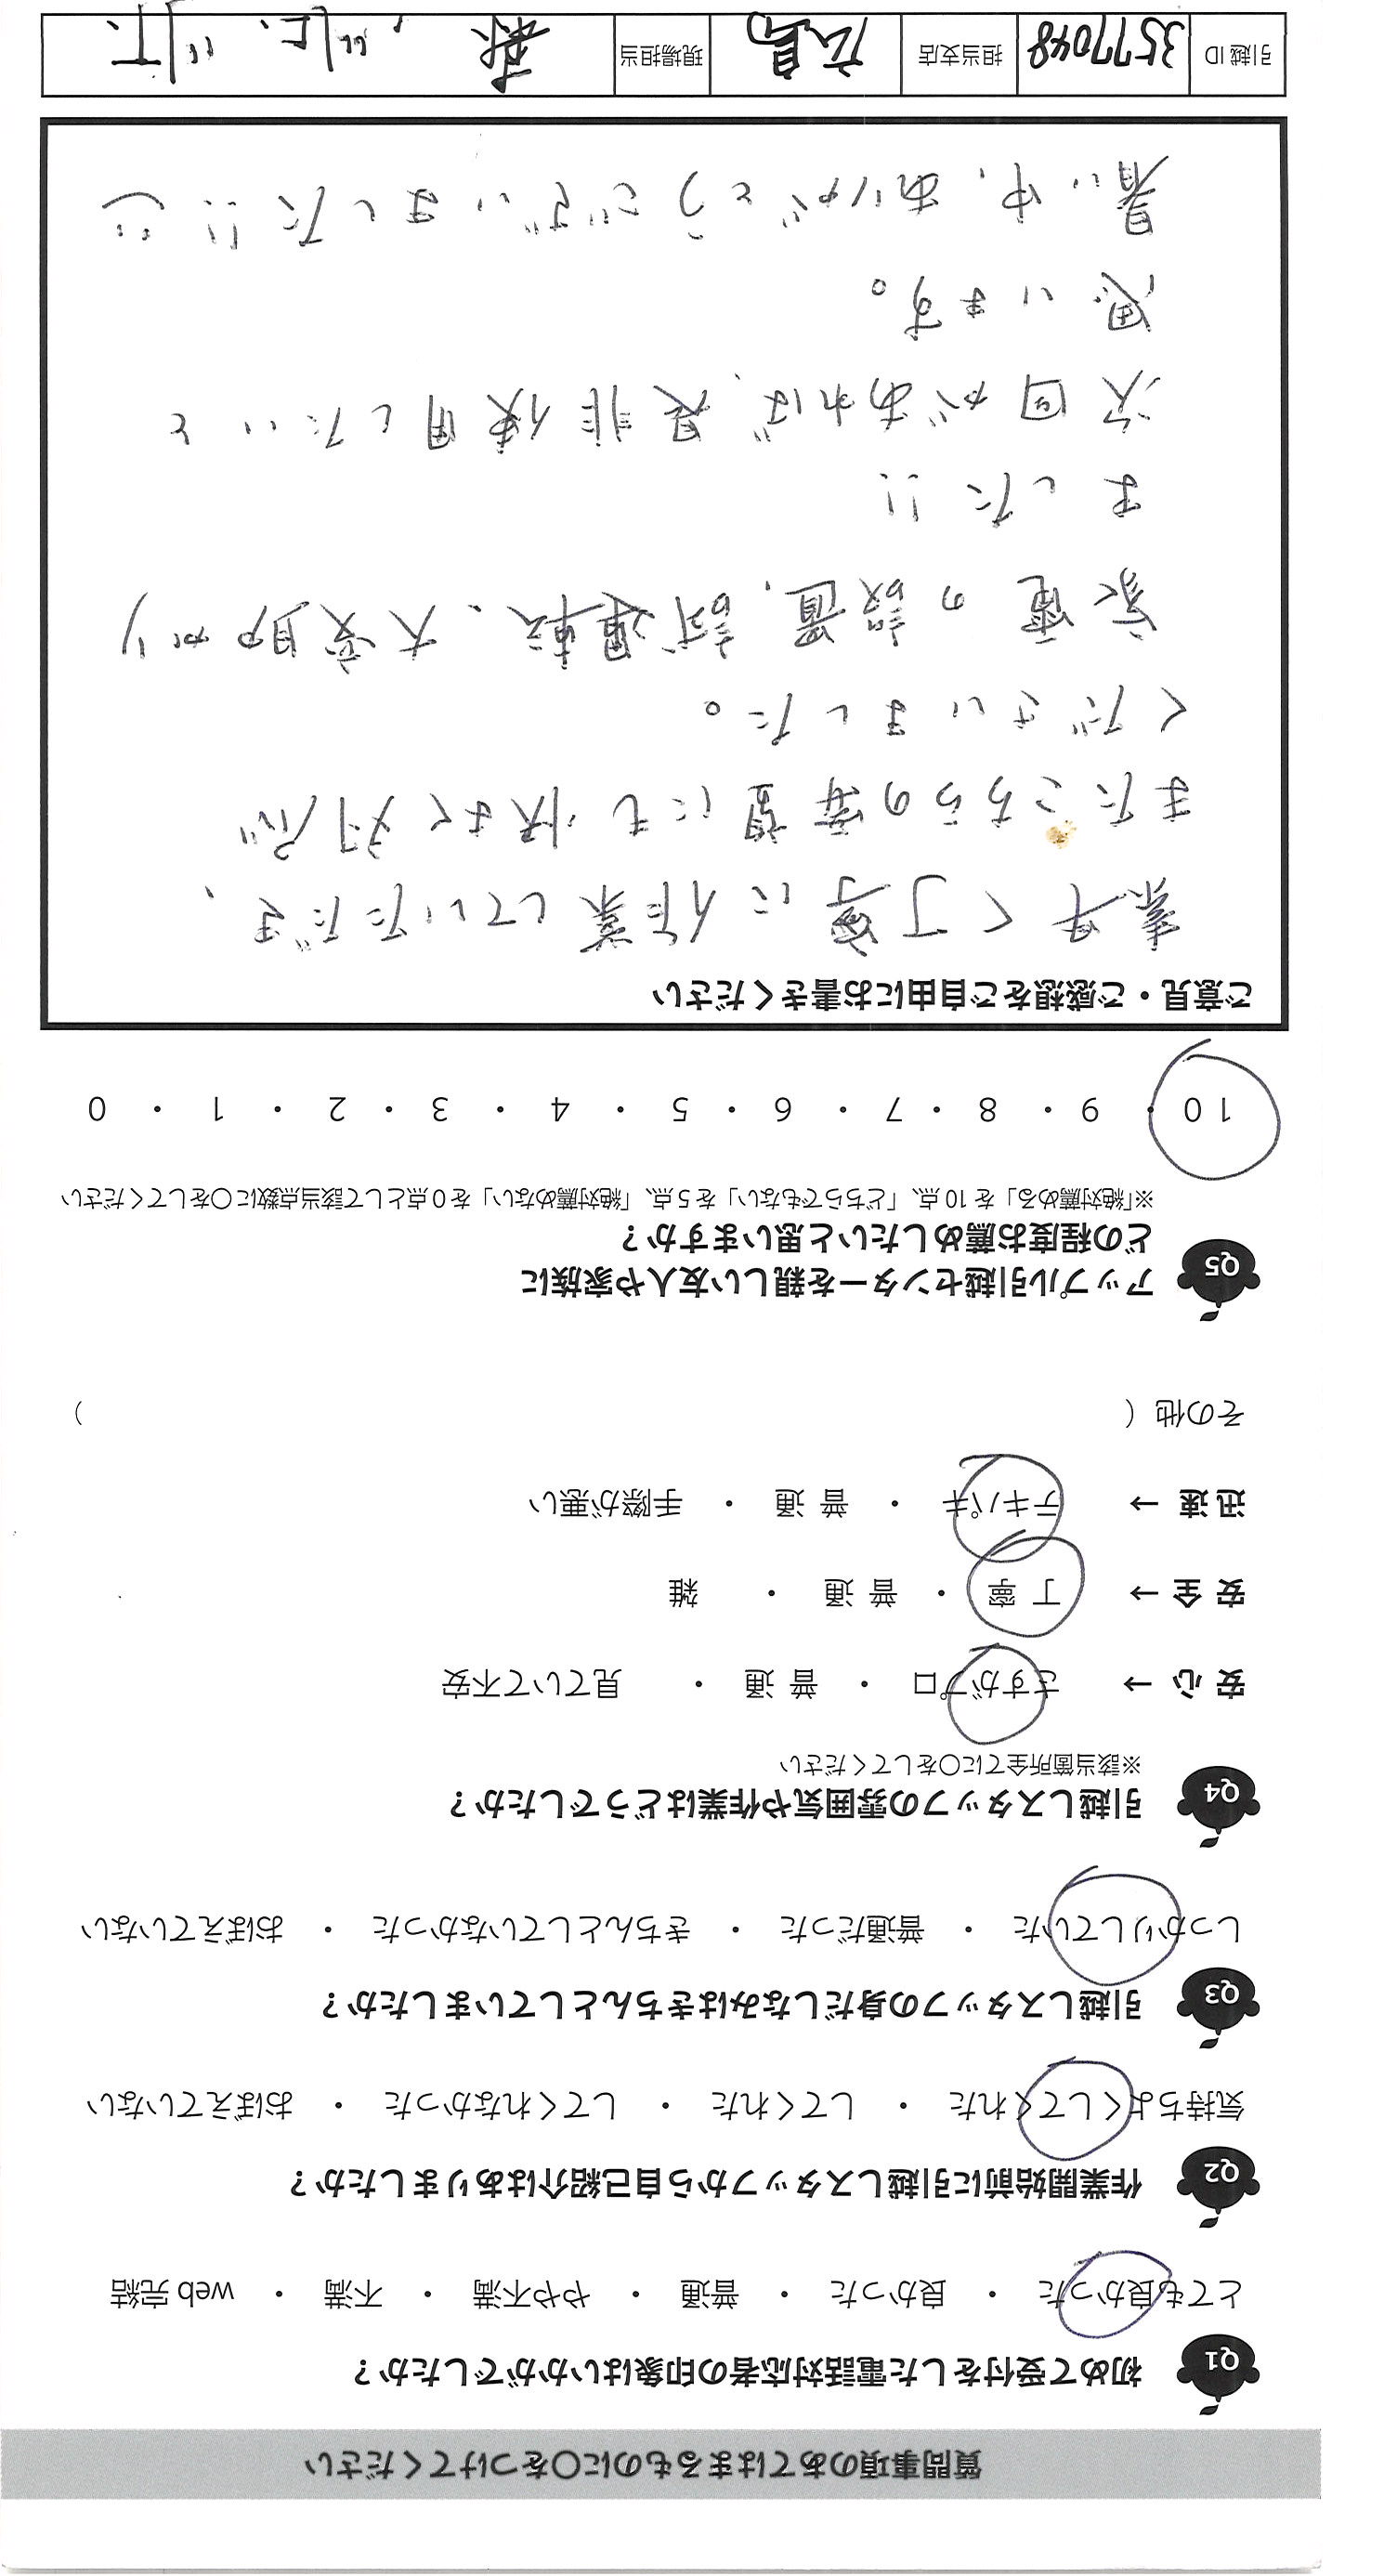 質問事項のあてはまるものに○をつけてください
Q1 初めて受付をした電話対応者の印象はいかがでしたか？
とても良かった ・ 良かった ・ 普通 ・ やや不満 ・ 不満 ・ web 完結
Q2 作業開始前に引越しスタッフから自己紹介はありましたか？
気持ちよくしてくれた ・ してくれた ・ してくれなかった ・ おぼえていない
Q3 引越しスタッフの身だしなみはきちんとしていましたか？
しっかりしていた ・ 普通だった ・ きちんとしていなかった ・ おぼえていない
Q4 引越しスタッフの雰囲気や作業はどうでしたか？
※該当箇所全てに○をしてください
安心→ さすがプロ ・ 普通 ・ 見ていて不安
安全→ 丁寧 ・ 普通 ・ 雑
迅速→ テキパキ ・ 普通 ・ 手際が悪い
その他（ ）
Q5 アップル引越センターを親しい友人や家族に
どの程度お薦めしたいと思いますか？
※「絶対薦める」を 10 点、「どちらでもない」を 5 点、「絶対薦めない」を 0 点として該当点数に○をしてください
10 ・ 9 ・ 8 ・ 7 ・ 6 ・ 5 ・ 4 ・ 3 ・ 2 ・ 1 ・ 0
ご意見・ご感想をご自由にお書きください
素早く丁寧に作業していただき、
またこちらの希望にも快よく対応
くださいました。
家電の設置、試運転、大変助かり
ました!!
次回があれば、是非使用したいと
思います。
暑い中、ありがとうございました!!
引越 ID 3577048 担当支店 広島 現場担当 森